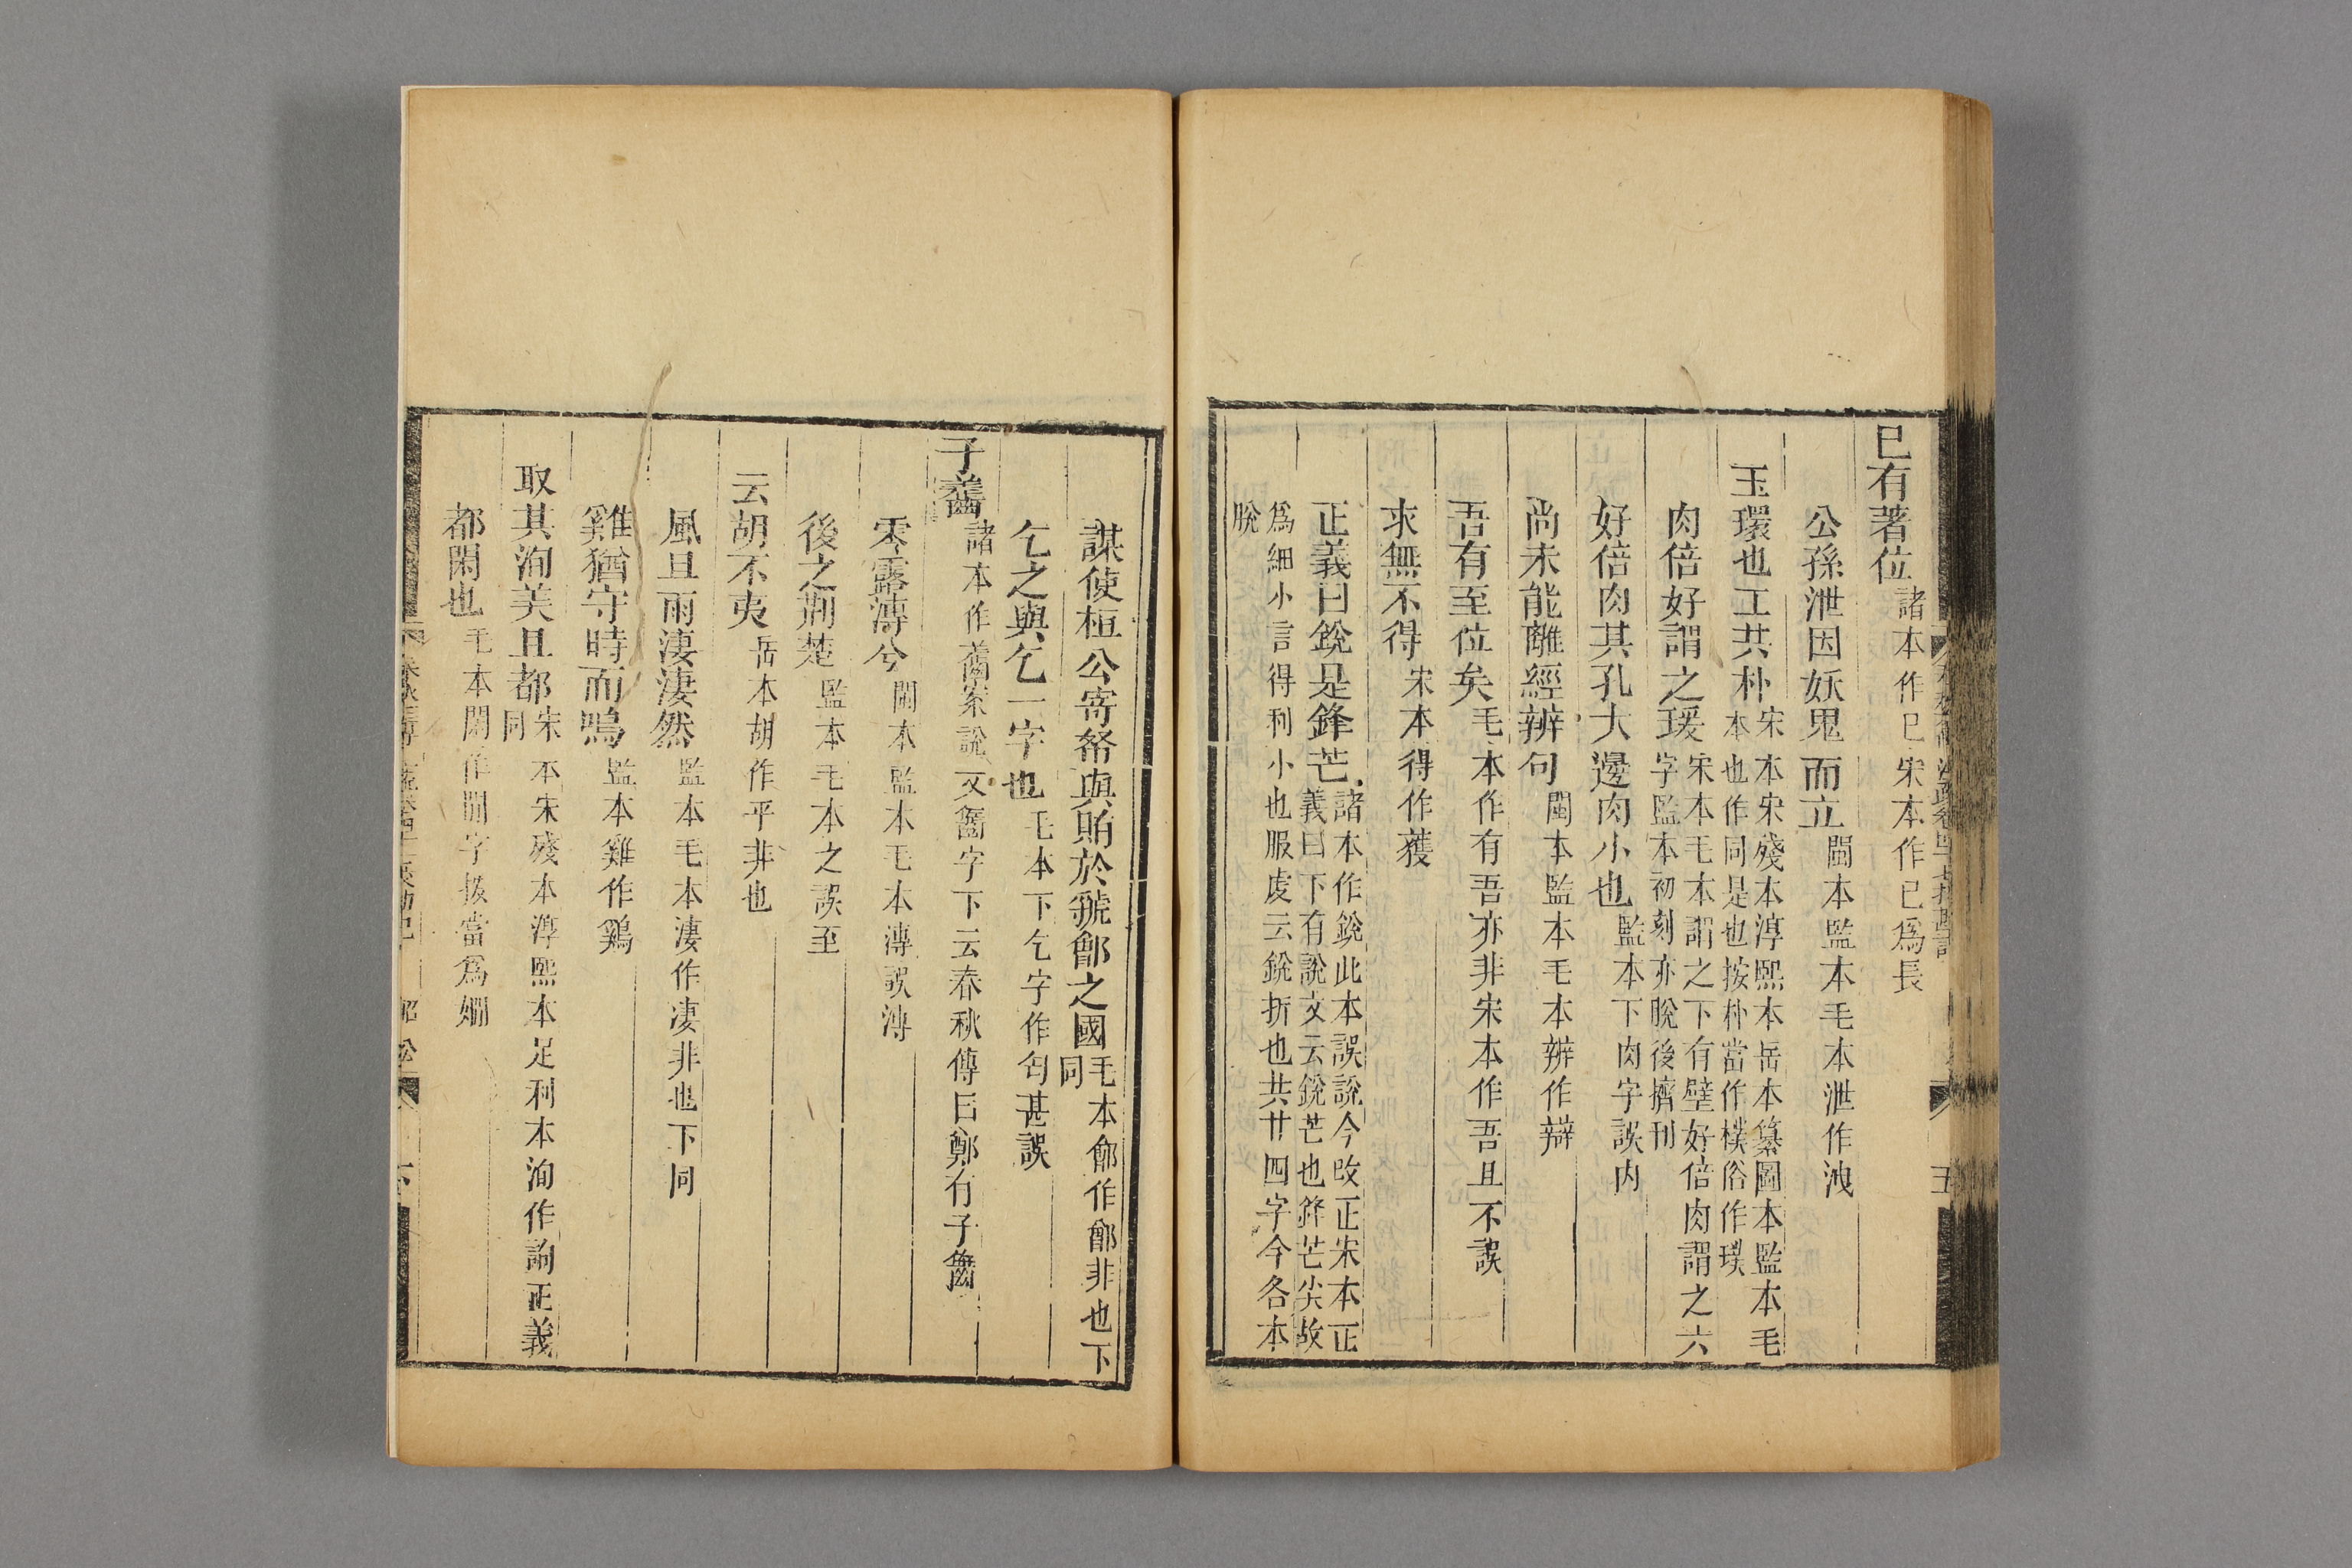 已有著位諸本作已宋本作已爲長
公孫泄因妖鬼而立閩本監本毛本泄作洩
玉環也工共朴宋本宋殘本淳熙本岳本纂圖本監本毛
本也作同是也按朴當作樸俗作璞
肉倍好謂之瑗宋本毛本謂之下有璧好倍肉謂之六
字監本初刻亦脫後擠刊
好倍肉其孔大邊肉小也監本下肉字誤内
尚未能離經辨句閩本監本毛本辨作辯
吾有至位矣毛本作有吾亦非宋本作吾且不誤
求無不得宋本得作獲
正義曰銳是鋒芒諸本作銳此本誤說今改正宋本正
義曰下有說文云銳芒也鋒芒尖故
爲細小言得利小也服虔云銳折也共廿四字今各本
脫
謀使桓公寄帑與賄於虢鄶之國毛本鄶作鄫非也下
同
乞之與乞一字也毛本下乞字作匄甚誤
子齹諸本作齹案說文齹字下云春秋傳曰鄭有子齹
零露漙兮閩本監本毛本漙誤溥
後之荆楚監本毛本之誤至
云胡不夷岳本胡作乎非也
風且雨淒淒然監本毛本淒作凄非也下同
雞猶守時而鳴監本雞作鷄
取其洵美且都宋本宋殘本淳熙本足利本洵作詢正義
同
都閑也毛本閑作閒字按當爲嫺